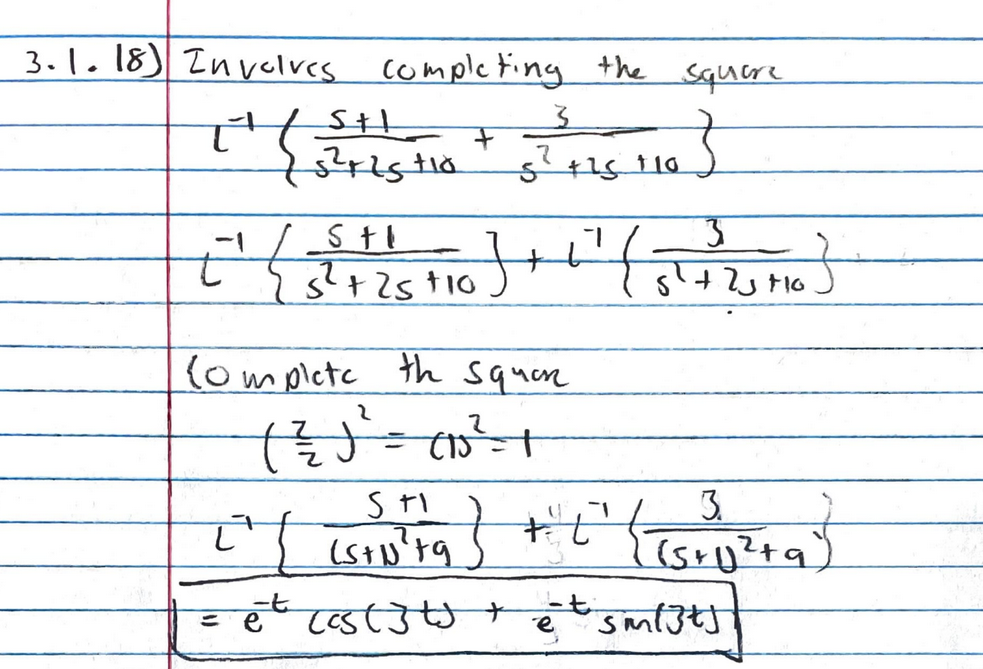 3.1.18) Involves completing the square
L⁻¹ { (s+1)/(s²+2s+10) + 3/(s²+2s+10) }
L⁻¹ { (s+1)/(s²+2s+10) } + L⁻¹ { 3/(s²+2s+10) }
Complete th square
(2/2)² = (1)² = 1
L⁻¹ { (s+1)/((s+1)²+9) } + L⁻¹ { 3/((s+1)²+9) }
= e⁻ᵗ cos(3t) + e⁻ᵗ sin(3t)